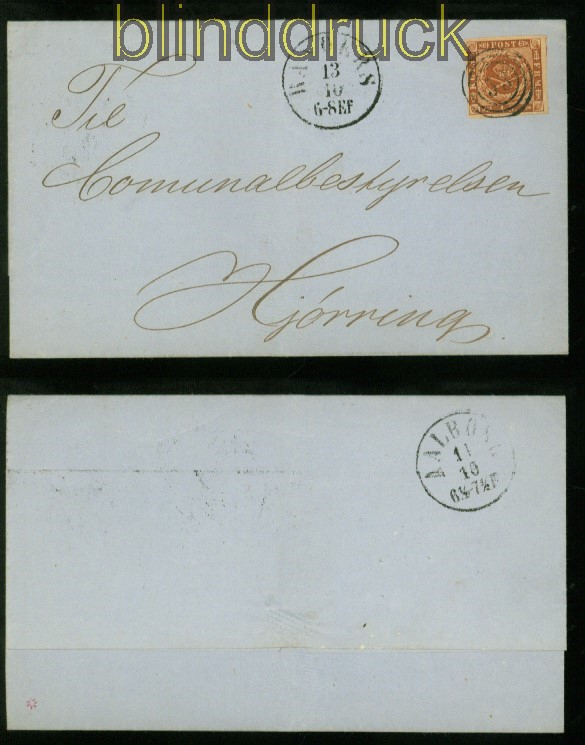 blinddruck
RANDERS
13
10
6-8EF
POST
Til
Comunalbestyrelsen
Hjörring
AALBORG
11
10
6½-7½EF